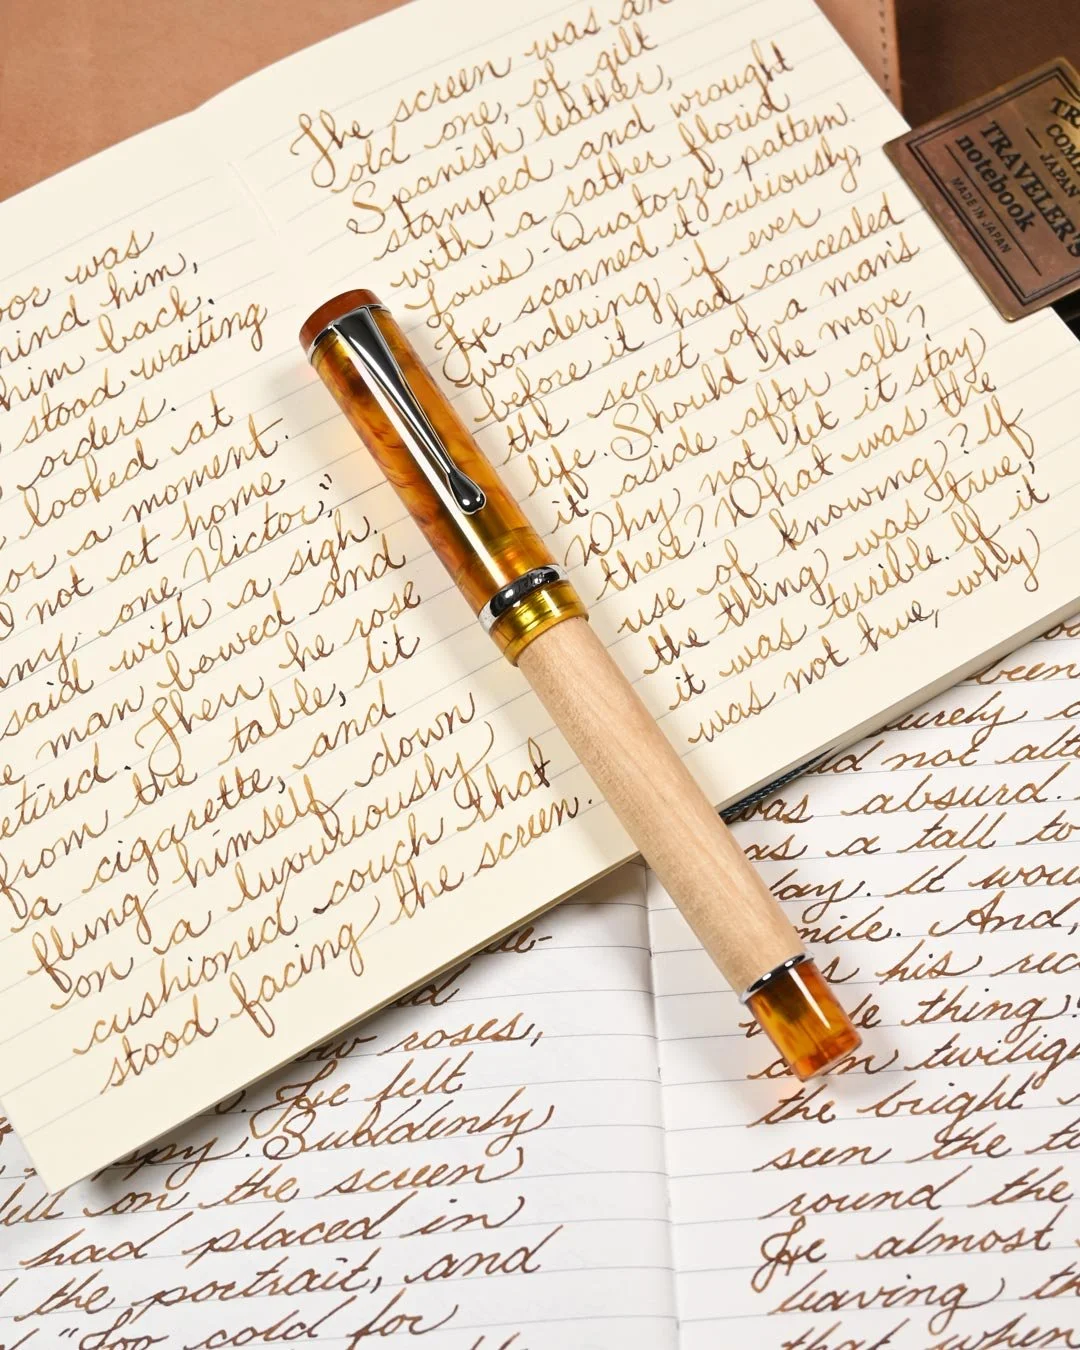 was
him,
him back.
stood waiting
orders.
looked at
a moment.
not at home
one, Victor,"
said with a sigh.
man bowed and
Then he rose
from the table, lit
a cigarette, and
flung himself down
on a luxuriously
cushioned couch that
stood facing the screen.
The screen was an
old one, of gilt
Spanish leather,
stamped and wrought
with a rather florid
Louis-Quatorze pattern.
He scanned it curiously,
wondering if ever
before it had concealed
the secret of a man's
life. Should he move
it aside after all?
Why not let it stay
there? What was the
use of knowing? If
the thing was true,
it was terrible. If it
was not true, why
TRAVELER'S
notebook
MADE IN JAPAN
JAPAN
TRAVELER'S
roses,
He felt
Suddenly
on the screen
had placed in
the portrait, and
"Too cold for
been
not
was absurd.
as a tall
It
And,
his
thing
the bright
seen the
round the
He almost
leaving
that when